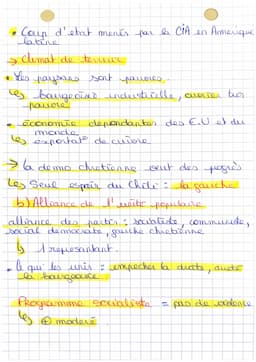 • Coup d'etat menés par la CIA en Amérique
latine
→ Climat de terreur
• Les paysans sont pauvres.
↳ bourgeoisie industrielle, ouvrier très
pauvre
• économie dependantes des E.U et du
monde
↳ exportat° de cuivre
→ la démo chretienne veut des progrès
↳ Seul espoir du Chili : la gauche
b) Alliance de l'unité populaire
alliance des partis : socialiste, communiste,
social democrate, gauche chretienne
↳ 1 representant.
• Ce qui les unis : empecher la droite,
la bourgeoisie
Programme socialiste = pas de violence
↳ ⊕ modéré